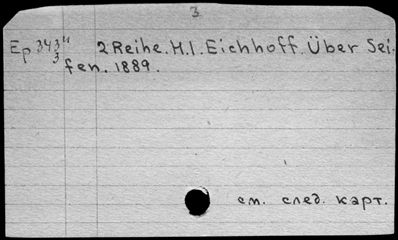 3
Ep 343 11/3 2 Reihe. H.1. Eichhoff. Über Sei-
fen. 1889.
см. след. карт.